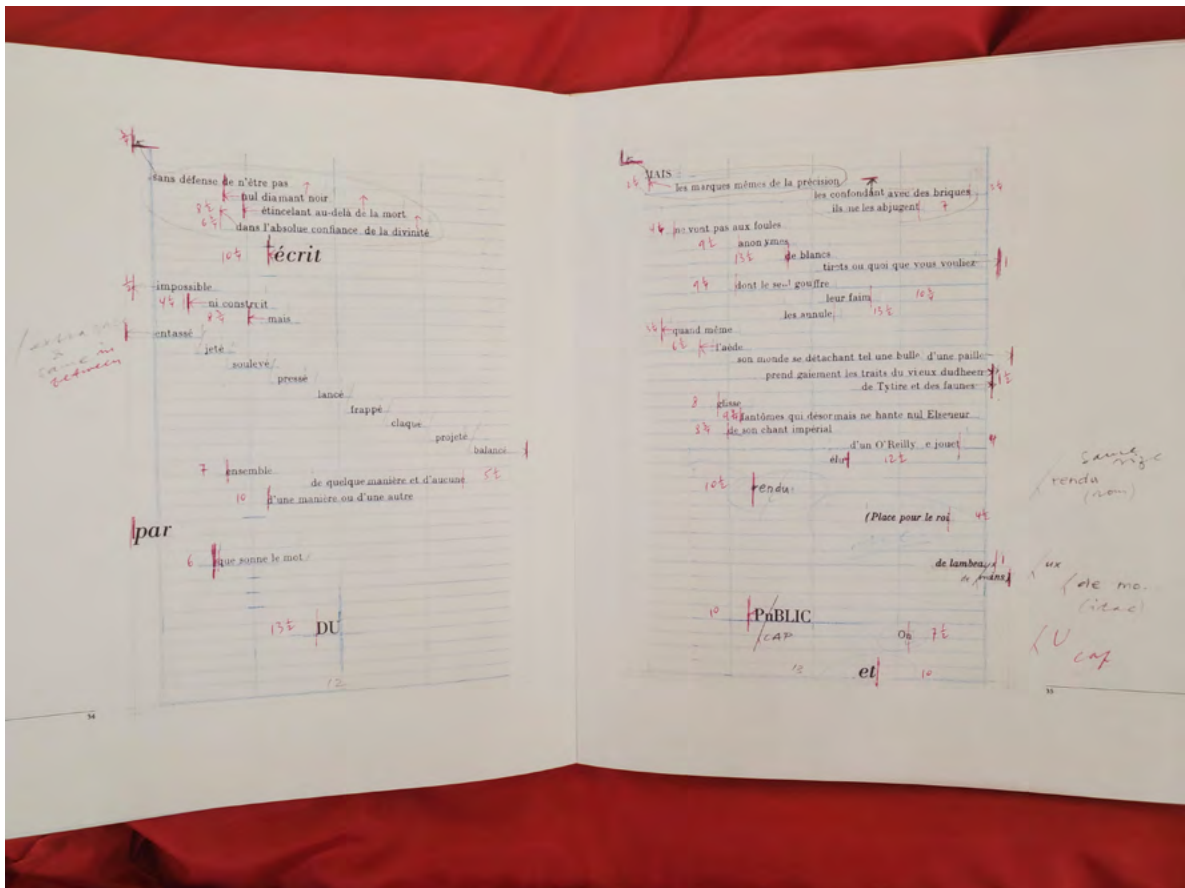 sans défense de n'être pas
nul diamant noir
8 ½ étincelant au-delà de la mort
6 ½ dans l'absolue confiance de la divinité
10 ¼ écrit
impossible
4 ¼ ni construit
8 ¾ mais
entassé
same in
between
jeté
soulevé
pressé
lancé
frappé
claqué
projeté
balancé
7 ensemble
de quelque manière et d'aucune 5 ½
10 d'une manière ou d'une autre
par
6 que sonne le mot
13 ½ DU
12
34
MAIS
les marques mêmes de la précision
les confondant avec des briques
ils ne les abjugent 7
ne vont pas aux foules
9 ½ anonymes
13 ½ de blancs
tirets ou quoi que vous vouliez 1
9 ¼ dont le seul gouffre
leur faim 10 ¾
les annule 13 ½
quand même
6 ½ l'aède
son monde se détachant tel une bulle d'une paille
prend gaiement les traits du vieux dudheen
de Tytire et des faunes 1 ½
8 glisse
9 ¾ fantômes qui désormais ne hante nul Elseneur
3 ¾ de son chant impérial
d'un O'Reilly e jouet
élu 12 ½
same
size
10 ½ rendu
rendu
(rom)
(Place pour le roi 4 ½
de lambeau 1 ux
de
de mo.
(ital)
10 PnBLIC
CAP
On 7 ½
U
cap
13
et 10
35